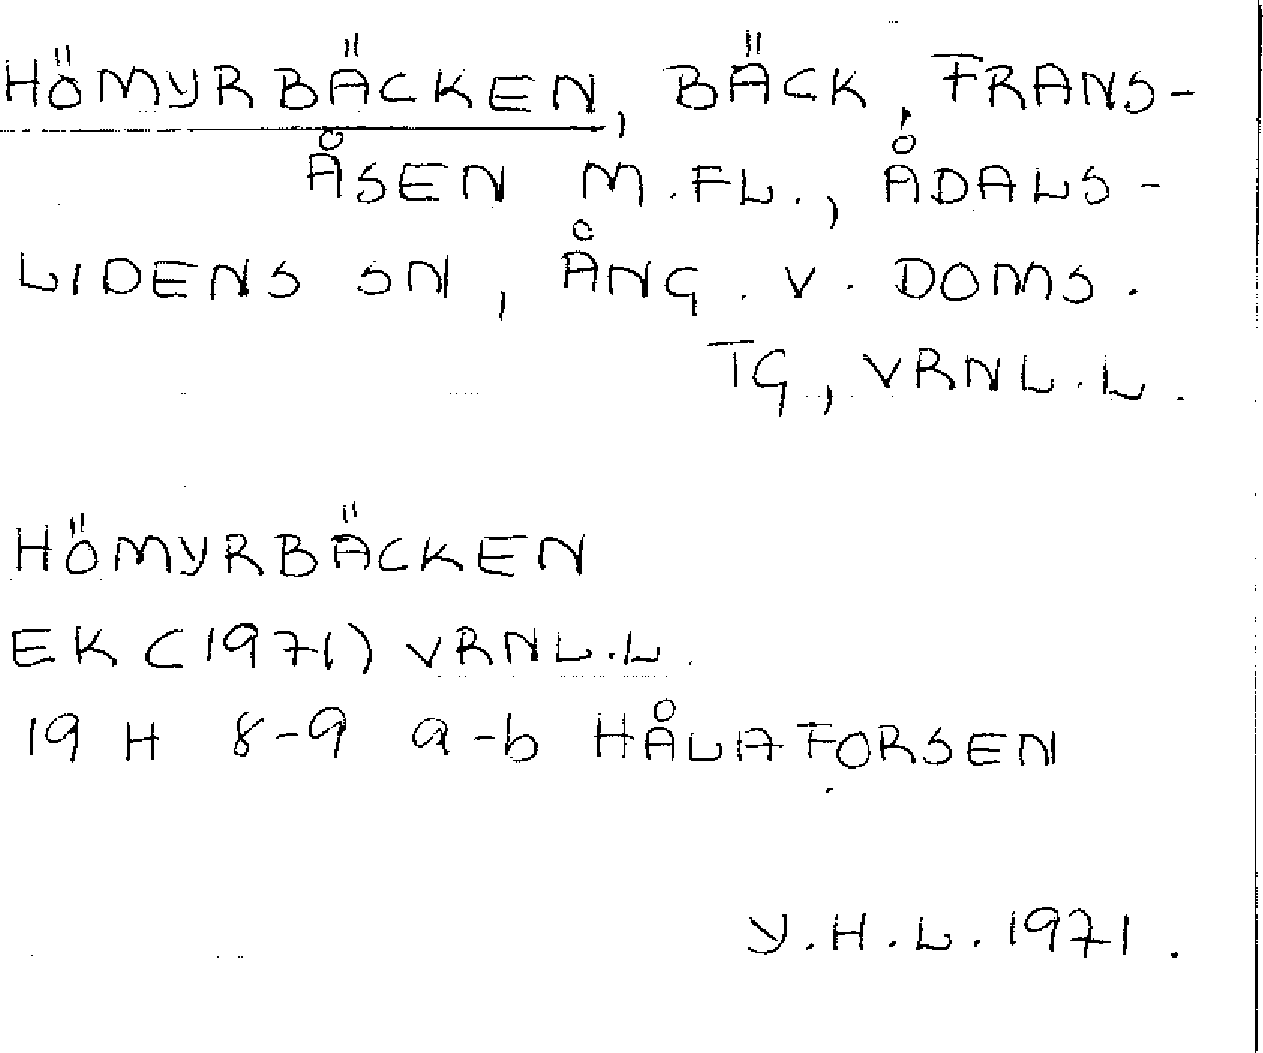 HÖMYRBÄCKEN, BÄCK, FRANS-
ÅSEN M.FL., ÅDALS-
LIDENS SN, ÅNG. V. DOMS.
TG, VRNL.L.
HÖMYRBÄCKEN
EK (1971) VRNL.L.
19 H 8-9 a-b HÅLAFORSEN
Y.H.L. 1971.